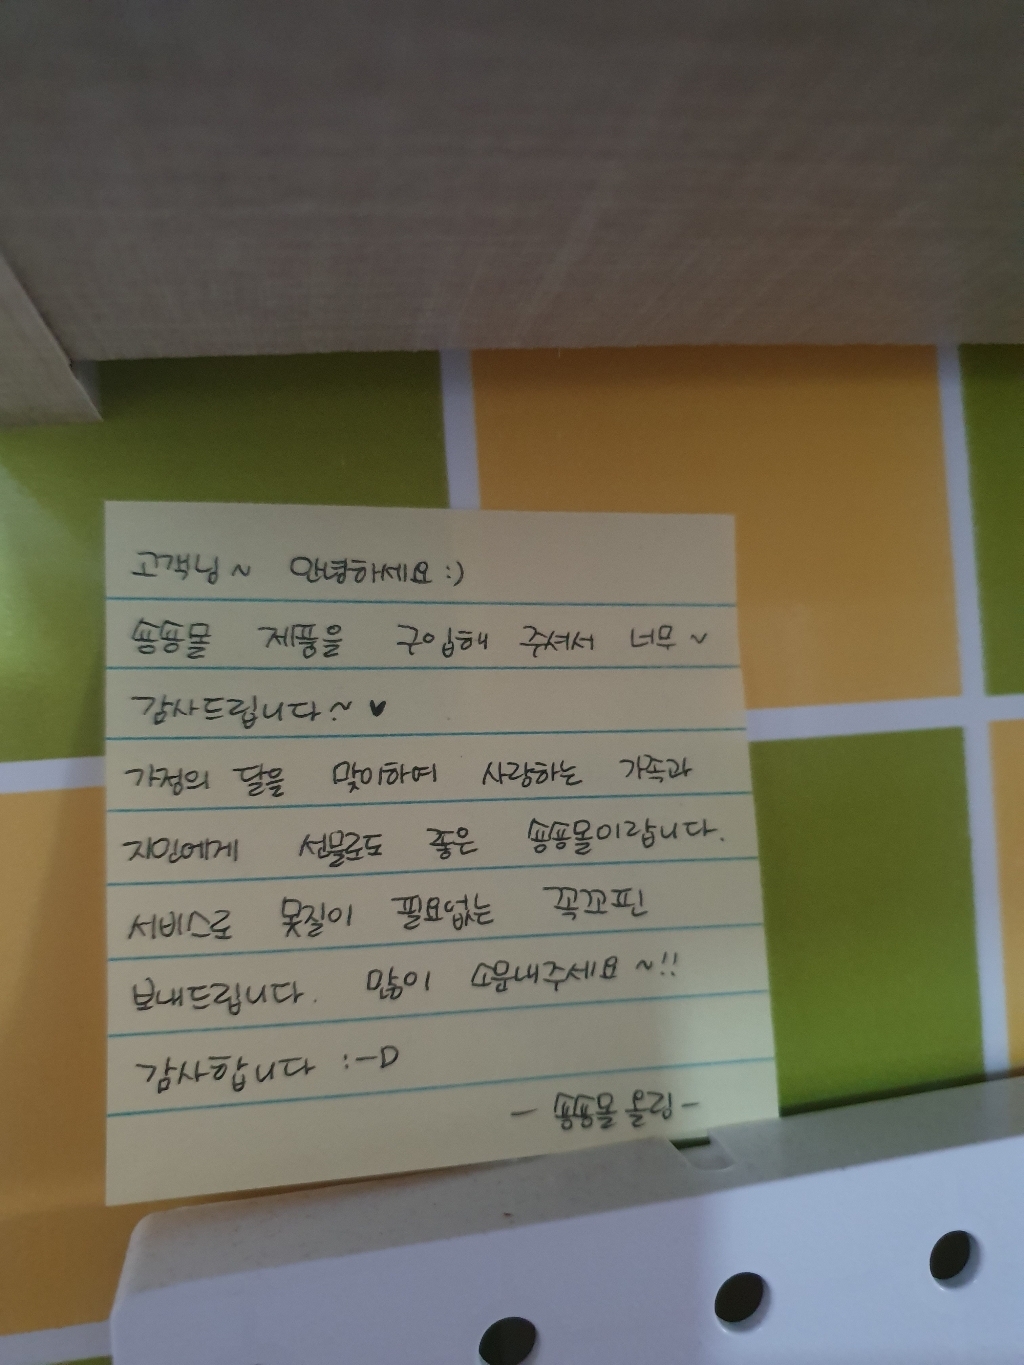 고객님~ 안녕하세요 :)
송송몰 제품을 구입해 주셔서 너무~
감사드립니다~ ♥
가정의 달을 맞이하여 사랑하는 가족과
지인에게 선물로도 좋은 송송몰이랍니다.
서비스로 못질이 필요없는 꼭꼬핀
보내드립니다. 많이 소문내주세요~!!
감사합니다 :-D
- 송송몰 올림 -